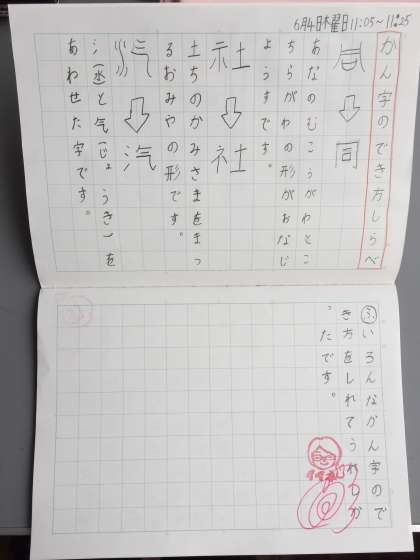 6月4日木曜日11:05～11:25
かん字のでき方しらべ
同
あなのむこうがわとこ
ちらがわの形がおなじ
ようすです。
社
土ちのかみさまをまつ
るおみやの形です。
汽
氵(水)と气(じょうき)を
あわせた字です。
ふ いろんなかん字ので
き方をしれてうれしか
ったです。